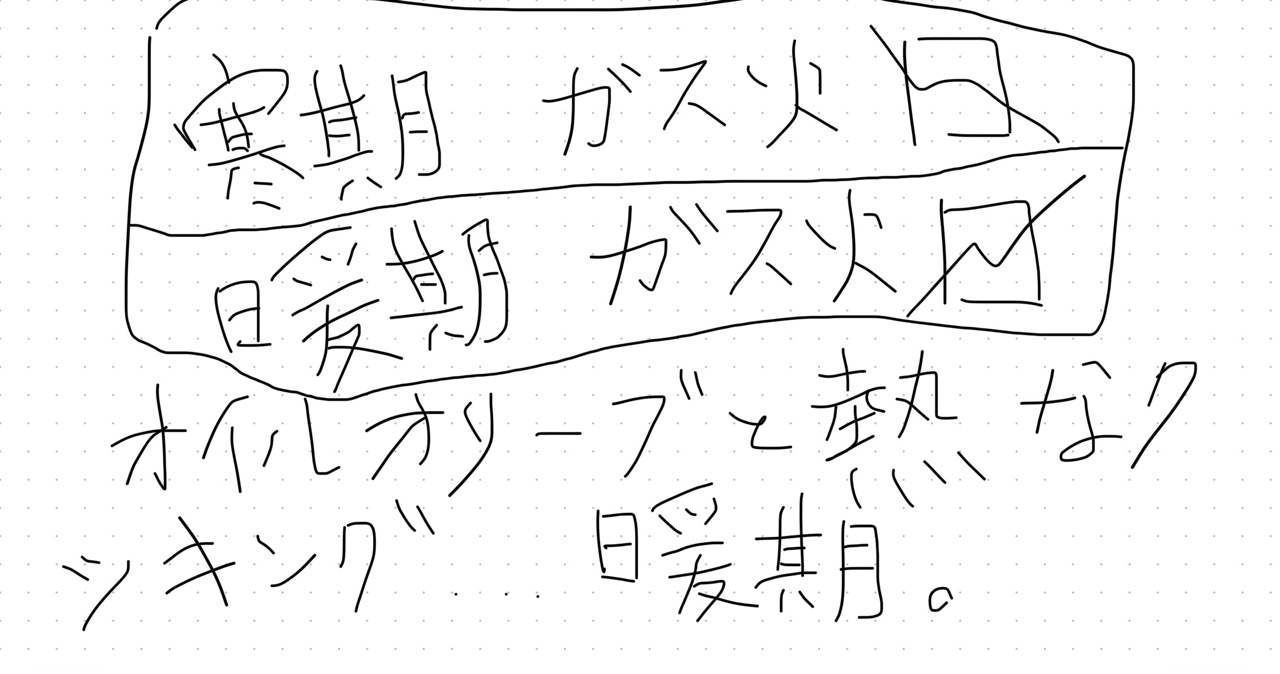 寒期 ガス火
暖期 ガス火
オイルオリーブと熱なク
ッキング... 暖期。